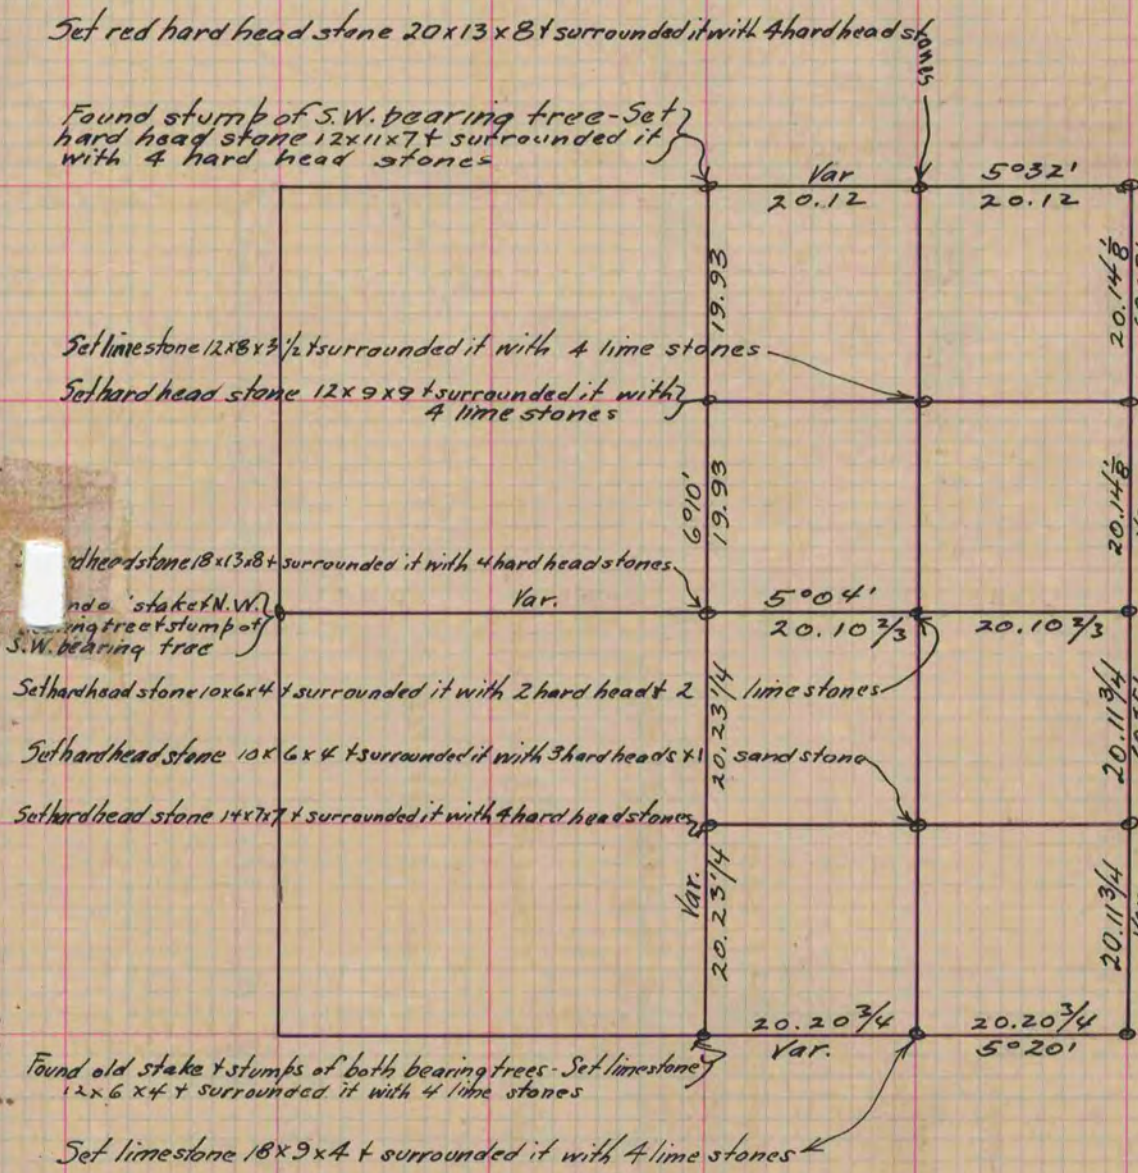 Set red hard head stone 20x13x8 + surrounded it with 4 hard head stones
Found stump of S.W. bearing tree - Set
hard head stone 12x11x7 + surrounded it
with 4 hard head stones
Var 5°32'
20.12 20.12
19.93
20.14 1/8
Set limestone 12x8x3 1/2 + surrounded it with 4 lime stones
Set hard head stone 12x9x9 + surrounded it with
4 lime stones
6°10'
19.93
20.14 1/8
headstone 18x13x8 + surrounded it with 4 hard head stones
stake + N.W.
tree + stump of
S.W. bearing tree
Var. 5°04'
20.10 2/3 20.10 2/3
Set hard head stone 10x6x4 + surrounded it with 2 hard head + 2 lime stones
20.23 1/4
20.11 3/4
Set hard head stone 10x6x4 + surrounded it with 3 hard heads + 1 sand stone
Set hard head stone 14x7x7 + surrounded it with 4 hard head stones
Var.
20.23 1/4
20.11 3/4
20.20 3/4 20.20 3/4
Var. 5°20'
Found old stake + stumps of both bearing trees - Set limestone
12x6x4 + surrounded it with 4 lime stones
Set limestone 18x9x4 + surrounded it with 4 lime stones